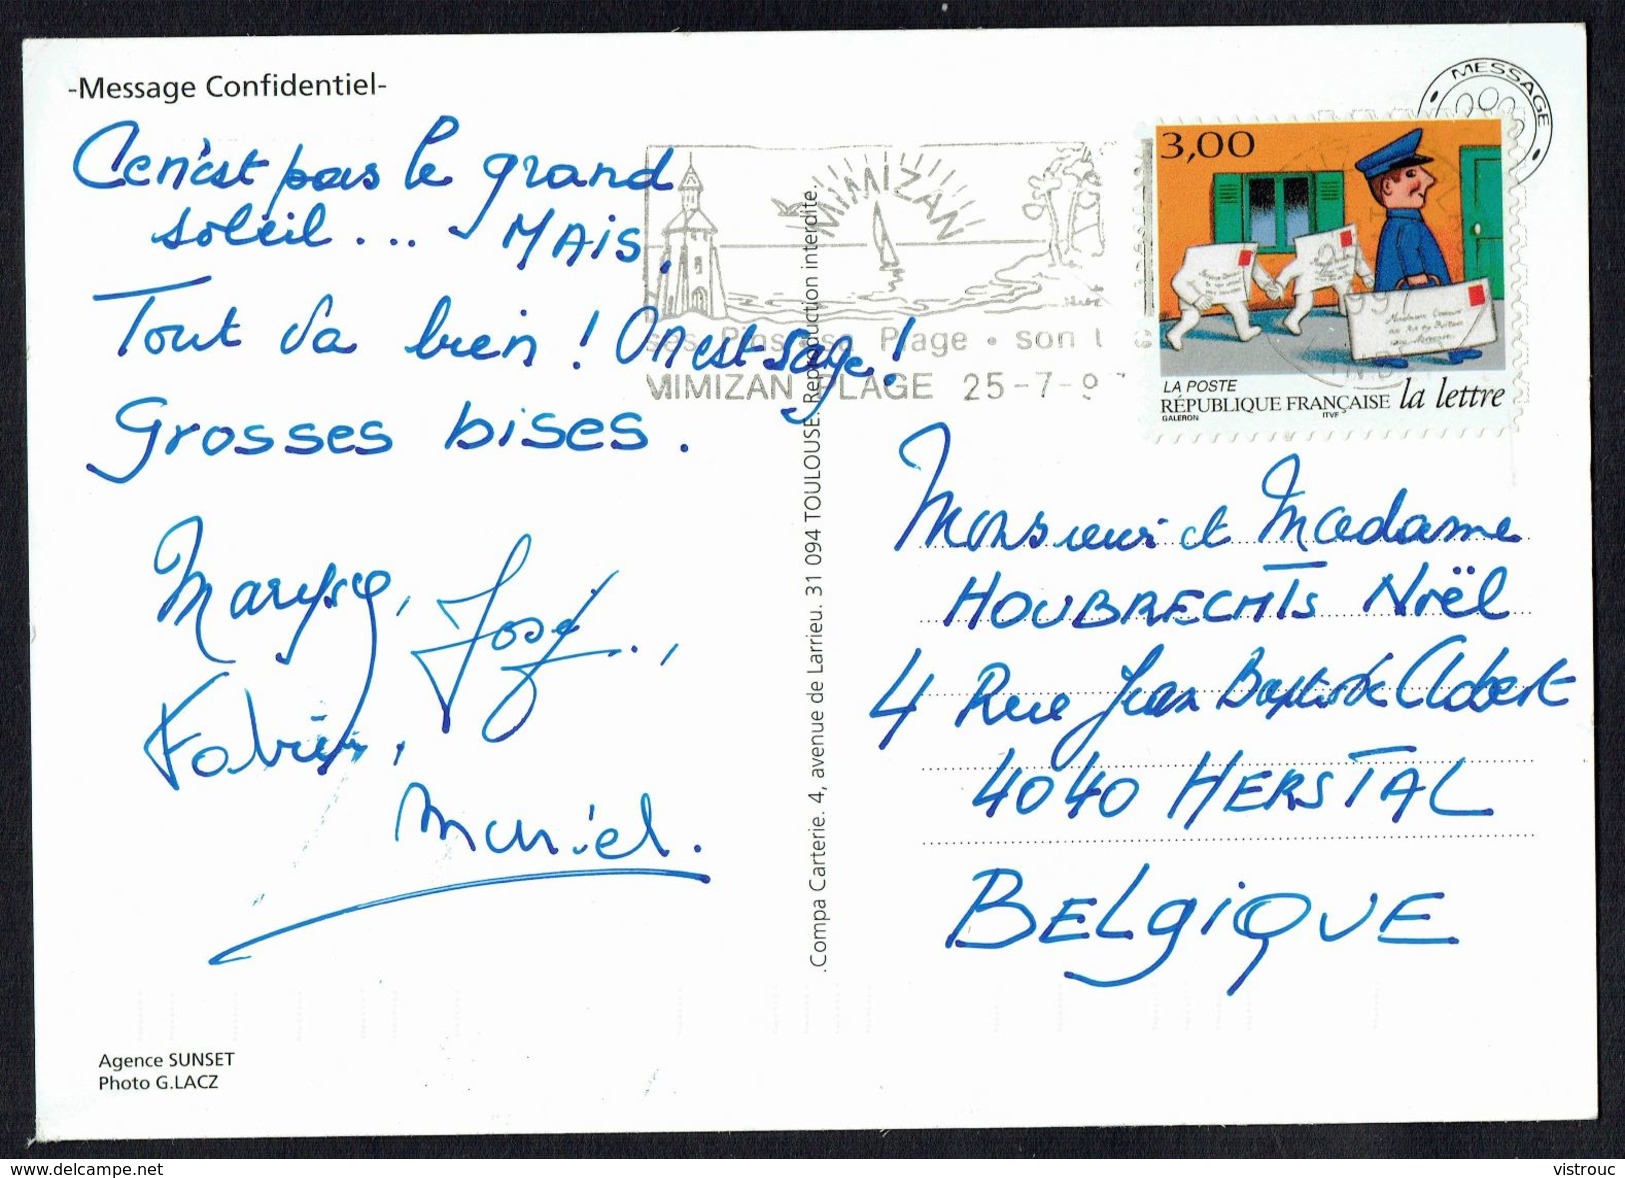 -Message Confidentiel-
Ce n'est pas le grand
soleil... MAIS.
Tout va bien ! On est sage !
Grosses bises.
Maryse, José,
Fabien,
Muriel.
Agence SUNSET
Photo G.LACZ
.Compa Carterie. 4, avenue de Larrieu. 31 094 TOULOUSE. Reproduction interdite.
MIMIZAN
ses Pins • se Plage • son
MIMIZAN PLAGE 25-7-9
MESSAGE
3,00
LA POSTE
RÉPUBLIQUE FRANÇAISE la lettre
GALERON ITVF
Monsieur et Madame
HOUBRECHTS Noël
4 Rue Jean Baptiste Clobert
4040 HERSTAL
BELgiQUE
delcampe.net
vistrouc